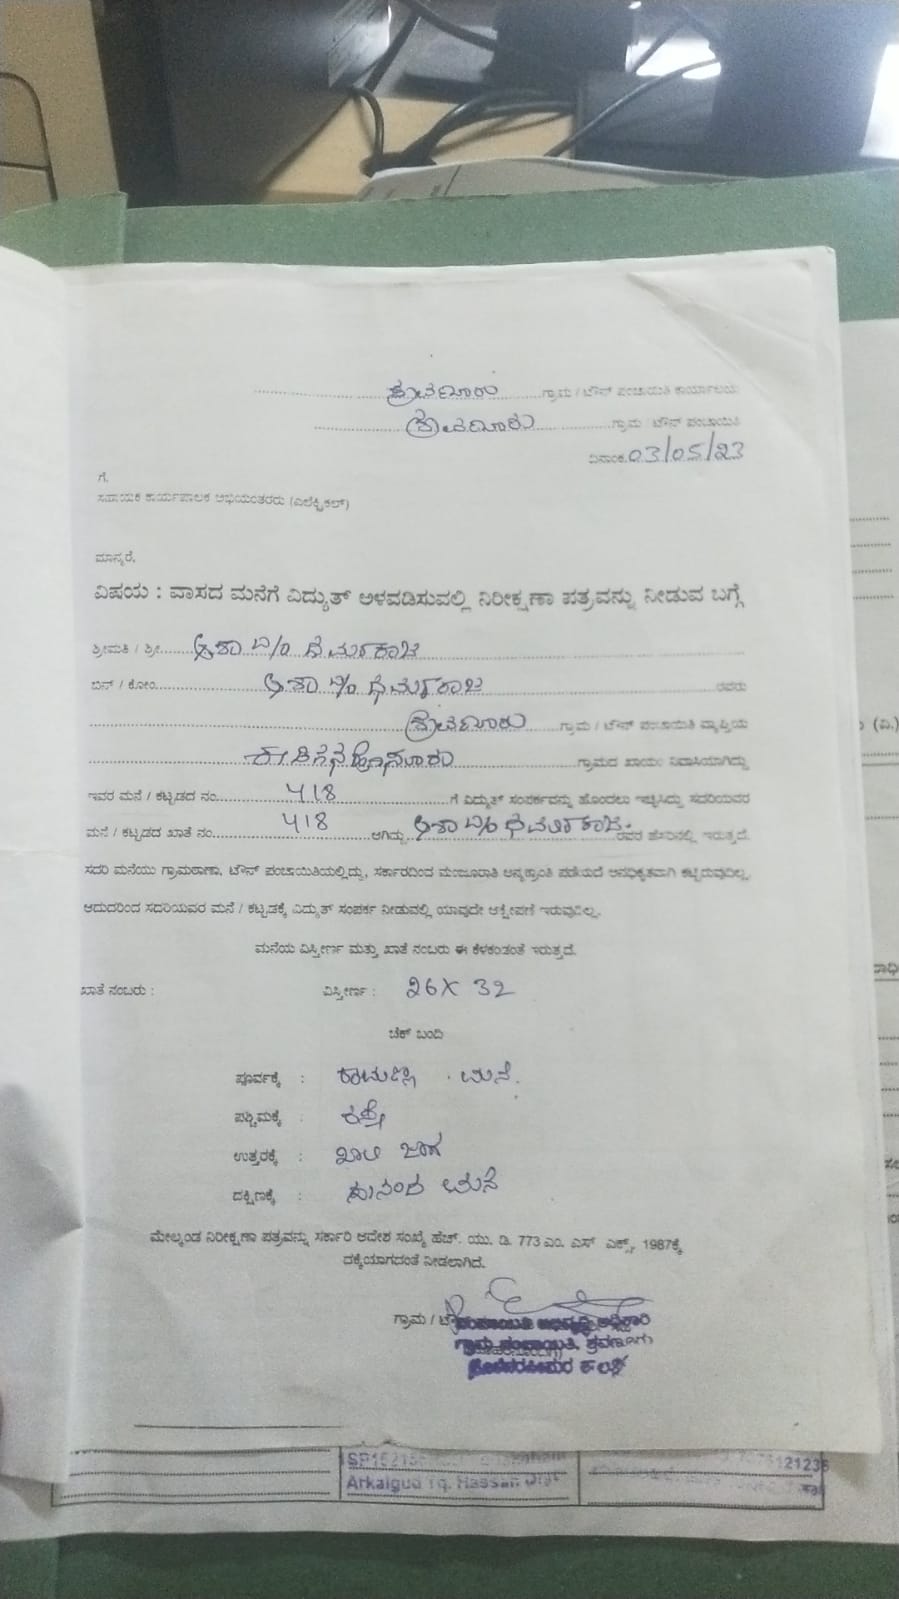 ಗ್ರಾಮ / ಟೌನ್ ಪಂಚಾಯಿತಿ ಕಾರ್ಯಾಲಯ
ಗ್ರಾಮ / ಟೌನ್ ಪಂಚಾಯಿತಿ
ದಿನಾಂಕ 03/05/23
ಗೆ,
ಸಹಾಯಕ ಕಾರ್ಯಪಾಲಕ ಅಭಿಯಂತರರು (ಎಲೆಕ್ಟ್ರಿಕಲ್)
ಮಾನ್ಯರೆ,
ವಿಷಯ : ವಾಸದ ಮನೆಗೆ ವಿದ್ಯುತ್ ಅಳವಡಿಸುವಲ್ಲಿ ನಿರೀಕ್ಷಣಾ ಪತ್ರವನ್ನು ನೀಡುವ ಬಗ್ಗೆ
ಶ್ರೀಮತಿ / ಶ್ರೀ ಆಶಾ
ಬಿನ್ / ಕೋಂ ಆಶಾ ರವರು
ಗ್ರಾಮ / ಟೌನ್ ಪಂಚಾಯಿತಿ ವ್ಯಾಪ್ತಿಯ
ಗ್ರಾಮದ ಖಾಯಂ ನಿವಾಸಿಯಾಗಿದ್ದು
ಇವರ ಮನೆ / ಕಟ್ಟಡದ ನಂ. 418 ಗೆ ವಿದ್ಯುತ್ ಸಂಪರ್ಕವನ್ನು ಹೊಂದಲು ಇಚ್ಛಿಸಿದ್ದು ಸದರಿಯವರ
ಮನೆ / ಕಟ್ಟಡದ ಖಾತೆ ನಂ. 418 ಆಗಿದ್ದು ಆಶಾ ರವರ ಹೆಸರಿನಲ್ಲಿ ಇರುತ್ತದೆ.
ಸದರಿ ಮನೆಯು ಗ್ರಾಮಠಾಣಾ, ಟೌನ್ ಪಂಚಾಯಿತಿಯಲ್ಲಿದ್ದು, ಸರ್ಕಾರದಿಂದ ಮಂಜೂರಾತಿ ಅನ್ಯಕ್ರಾಂತಿ ಪಡೆಯದೆ ಅನಧಿಕೃತವಾಗಿ ಕಟ್ಟಿರುವುದಿಲ್ಲ.
ಆದುದರಿಂದ ಸದರಿಯವರ ಮನೆ / ಕಟ್ಟಡಕ್ಕೆ ವಿದ್ಯುತ್ ಸಂಪರ್ಕ ನೀಡುವಲ್ಲಿ ಯಾವುದೇ ಆಕ್ಷೇಪಣೆ ಇರುವುದಿಲ್ಲ.
ಮನೆಯ ವಿಸ್ತೀರ್ಣ ಮತ್ತು ಖಾತೆ ನಂಬರು ಈ ಕೆಳಕಂಡಂತೆ ಇರುತ್ತದೆ.
ಖಾತೆ ನಂಬರು : ವಿಸ್ತೀರ್ಣ : 26 X 32
ಚೆಕ್ ಬಂದಿ
ಪೂರ್ವಕ್ಕೆ : ಮನೆ.
ಪಶ್ಚಿಮಕ್ಕೆ : ರಸ್ತೆ
ಉತ್ತರಕ್ಕೆ : ಖಾಲಿ ಜಾಗ
ದಕ್ಷಿಣಕ್ಕೆ : ಸುನಂದ ಮನೆ
ಮೇಲ್ಕಂಡ ನಿರೀಕ್ಷಣಾ ಪತ್ರವನ್ನು ಸರ್ಕಾರಿ ಆದೇಶ ಸಂಖ್ಯೆ ಹೆಚ್. ಯು. ಡಿ. 773 ಎಂ. ಎಸ್ ಎಕ್ಸ್, 1987ಕ್ಕೆ
ದಕ್ಕೆಯಾಗದಂತೆ ನೀಡಲಾಗಿದೆ.
ಗ್ರಾಮ / ಪಂಚಾಯಿತಿ ಅಭಿವೃದ್ಧಿ ಅಧಿಕಾರಿ
ಗ್ರಾಮ ಪಂಚಾಯಿತಿ,
Arkalgud Tq. Hassan Dist